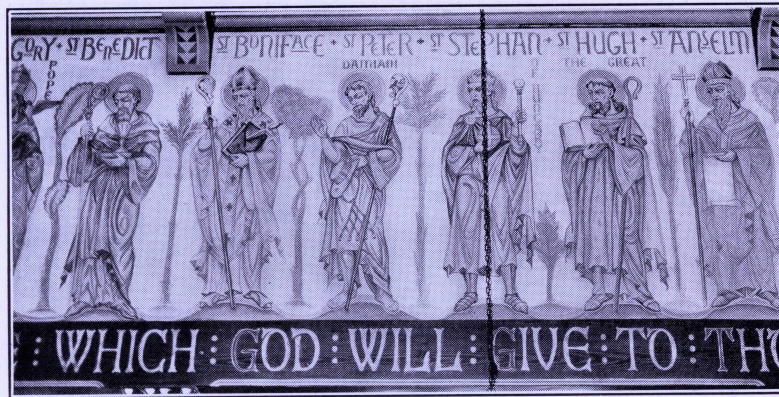 GORY + ST BENEDICT ST BONIFACE + ST PETER + ST STEPHAN + ST HUGH + ST ANSELM
POPE
DAMIANI
THE GREAT
: WHICH : GOD : WILL : GIVE : TO : THO